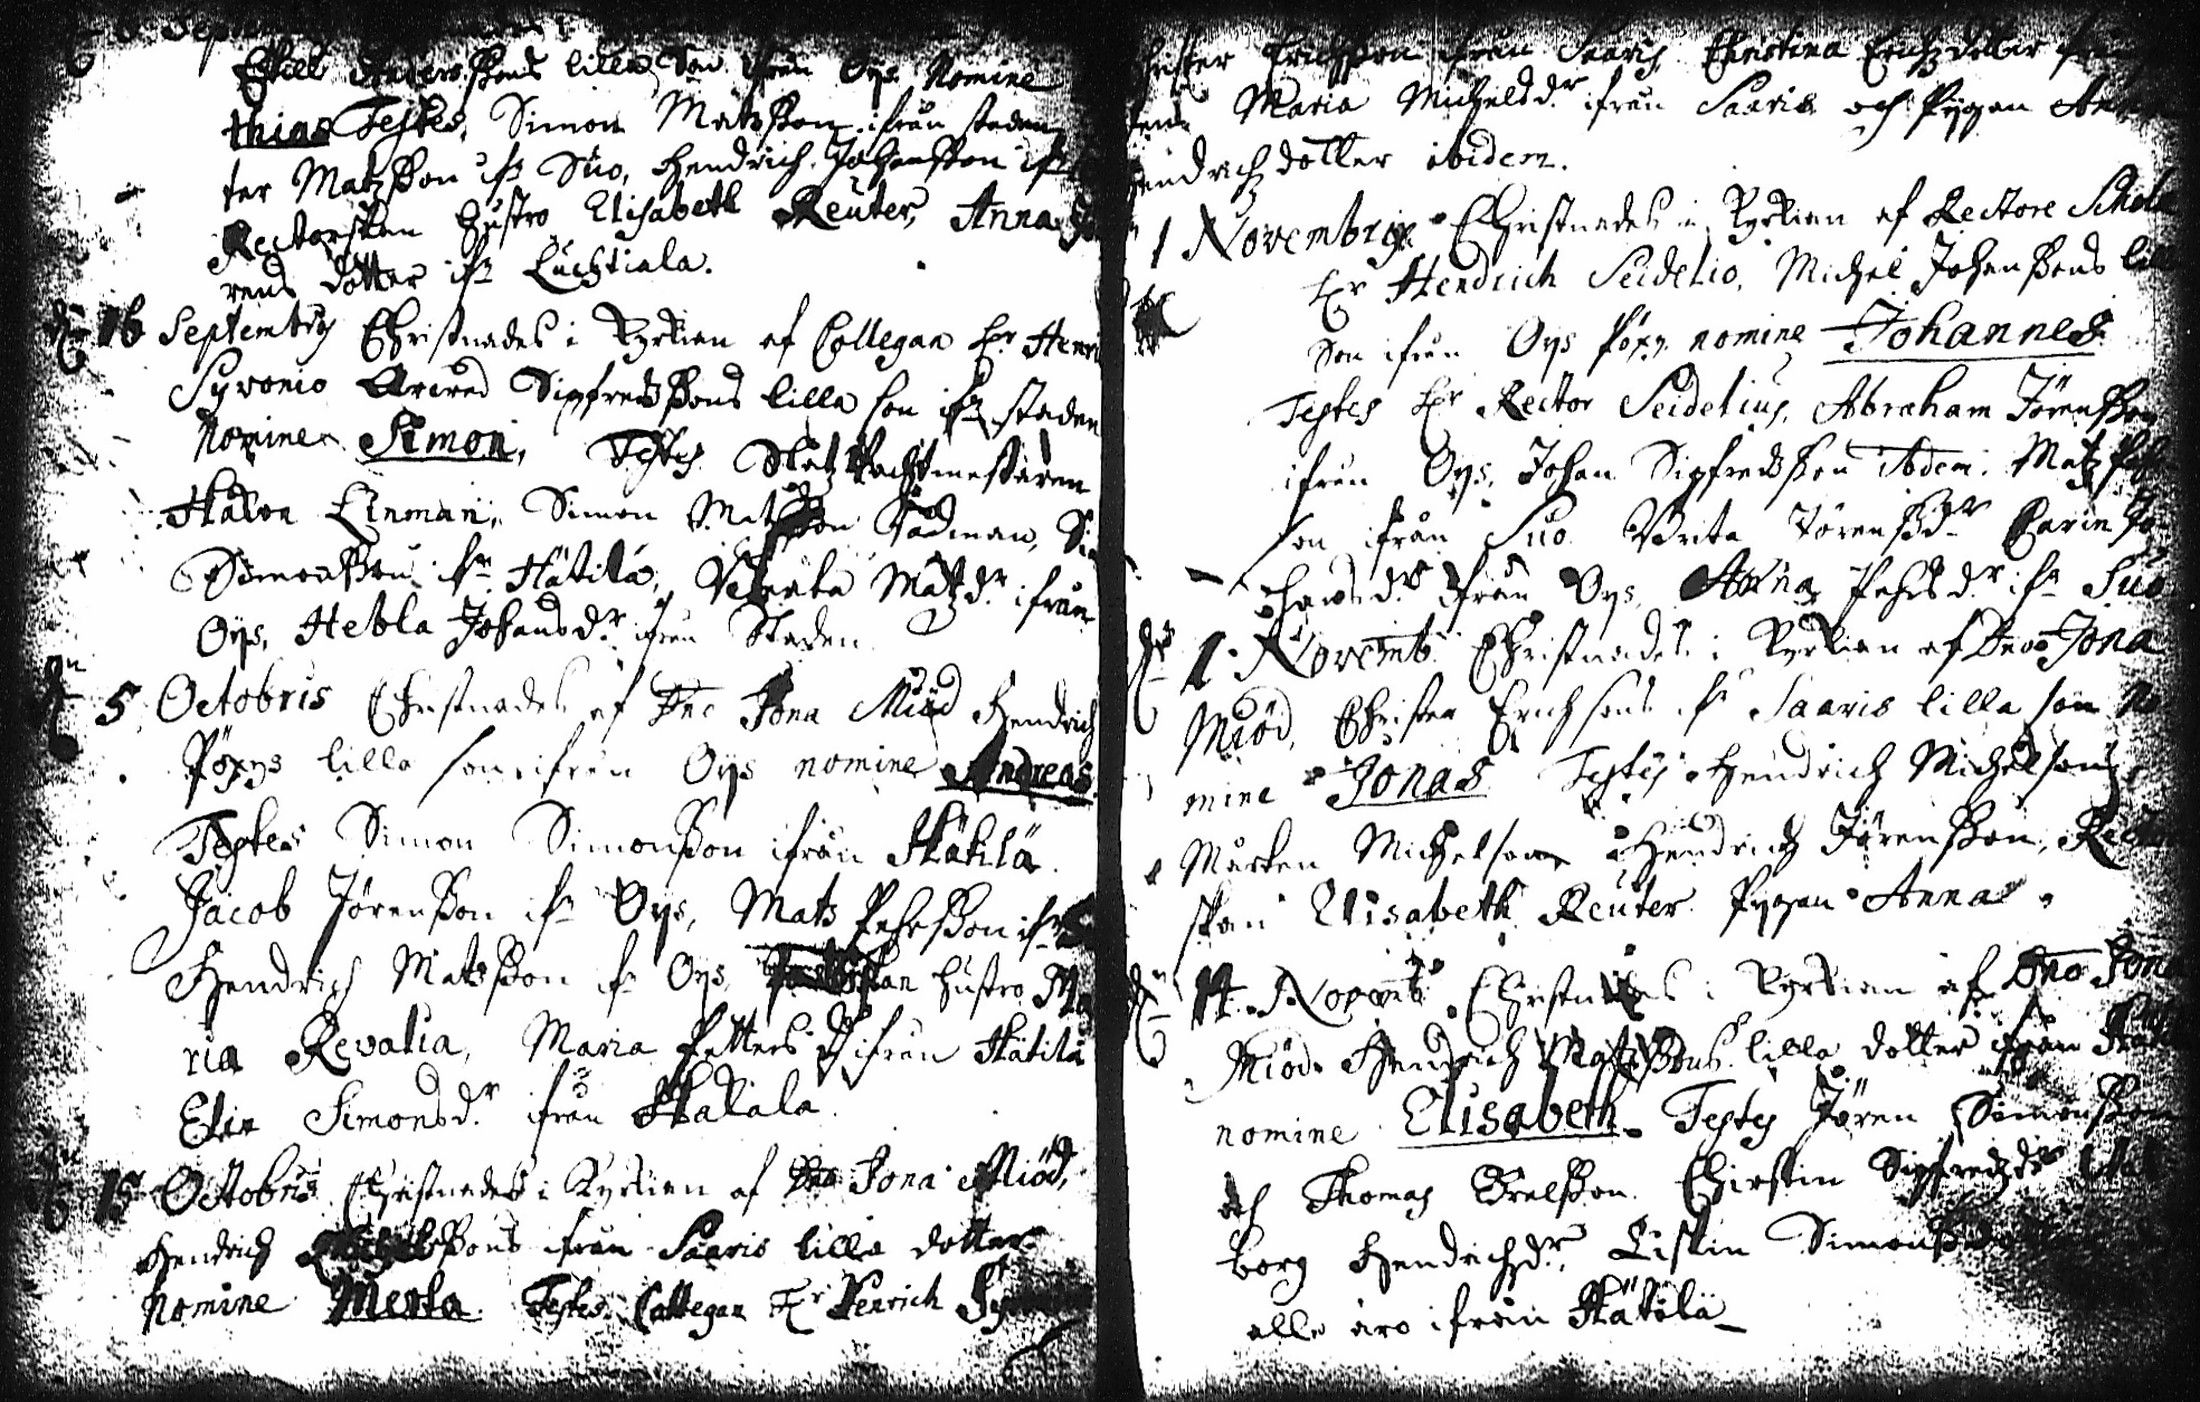 Septem
Eskill Andersßons lilla Son ifrån Oÿs Nomine
thias Testes, Simon Matzßon ifrån staden
ter Matzßon ifr Suo, Hendrich Johanßon ifr
Rectorskan hustro Elisabeth Reuter, Anna
rens dotter ifr Luchtiala.
16 Septembris Christnades i Kyrkian af Collegan Hr Henri
Syronio Sigfredßons lilla son ifr staden
Nomine Simon, Testes Vachtmestaren
Håkon Linman, Simon Matzßon Rådman, Si
Simonßon ifr Hätilä, Matzdr ifrån
Oÿs, Hebla Johansdr ifrån Staden
5 Octobris Christnades af Dno Jona Miöd Hendrich
Pöÿÿs lilla son ifrån Oÿs nomine Andreas
Testes Simon Simonßon ifrån Hätilä.
Jacob Jörenßon ifr Oÿs, Mats Pehrßon ifr
Hendrich Matsßon ifr Oÿs, hustro Ma
ria Revalia, Maria Petters dr ifrån Hätilä
Elin Simonsdr ifrån Hakala.
15 Octobris Christnades i Kyrkian af Dno Jona Miöd,
Hendrich ßons ifrån Saaris lilla dotter
Nomine Merta. Testes Collegan Hr Henrich Sy
Christer Erichßon ifrån Saaris, Christina Erichzdotter ifrån
Maria Michelsdr ifrån Saaris och Pÿgan An
Hendrichzdotter ibidem.
1 Novembris Christnades i Kyrkian af Rectore Schol
Hr Hendrich Seidelio, Michel Johanßons lilla
Son ifrån Oÿs Pöÿÿ nomine Johannes
Testes Hr Rector Seidelius, Abraham Jörenßon
ifrån Oÿs, Johan Sigfredßon ibdem. Matz Pehr
son ifrån Suo Brita Jörenßdr Carin Jo
hansdr ifrån Oÿs, Anna Pehrsdr ifr Suo
1 Novemb Christnades i Kyrkian af Dno Jona
Miöd, Christer Erichsons ifr Saaris lilla son No
mine Jonas Testes Hendrich Michelson,
Mårten Michelson Hendrich Jörenßon, Rector
skan Elisabeth Reuter Pÿgan Anna
14 Novemb Christnades i Kyrkian af Dno Jona
Miöd Hendrich Matzßons lilla dotter ifrån Häti
nomine Elisabeth Testes Jören Simonßon
och Thomas Grelsßon Chirstin Sigfredzdr Wal
borg Hendrichzdr, Liskin Simonß
alle äro ifrån Hätilä